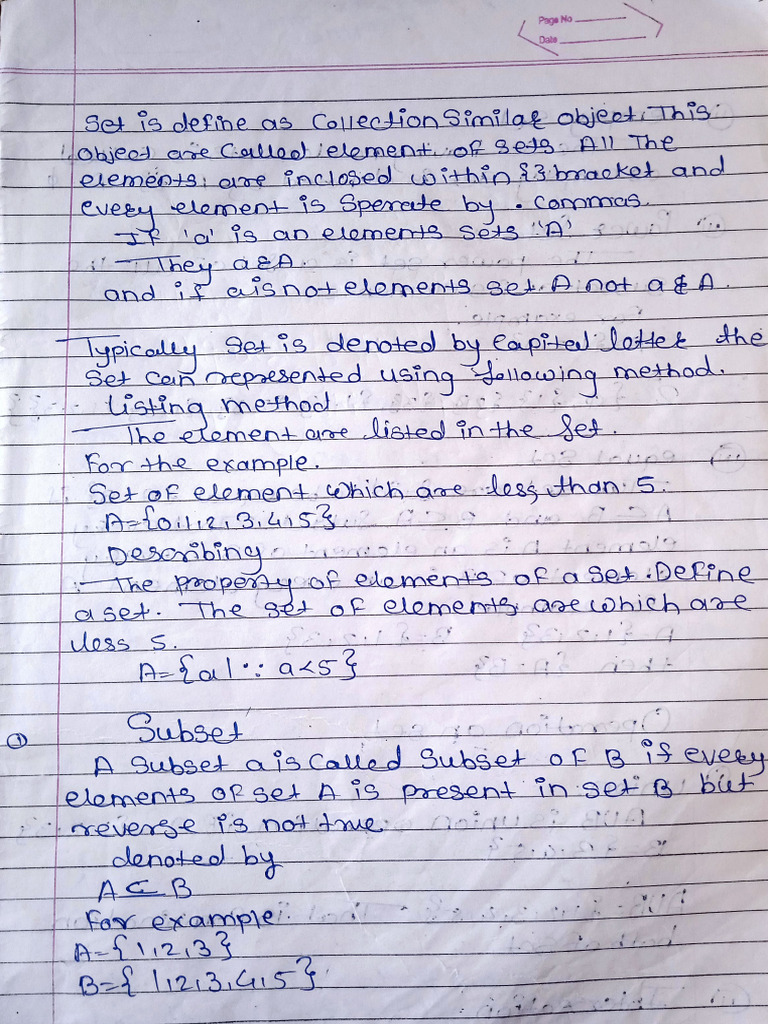 Page No
Date
Set is define as Collection Similar object. This
object are Called element of sets. All The
elements are inclosed within {} bracket and
every element is Sperate by , commas.
If 'a' is an elements sets 'A'
They a∈A
and if a is not elements set A not a∉A.
Typically Set is denoted by Capital letter the
Set can represented using following method.
listing method
The element are listed in the set.
For the example.
Set of element which are less than 5.
A={0,1,2,3,4,5}
Describing
The property of elements of a set. Define
a set. The set of elements are which are
less 5.
A={a|∵ a<5}
① Subset
A Subset a is Called Subset of B if every
elements of set A is present in set B but
reverse is not true
denoted by
A⊆B
For example
A={1,2,3}
B={1,2,3,4,5}